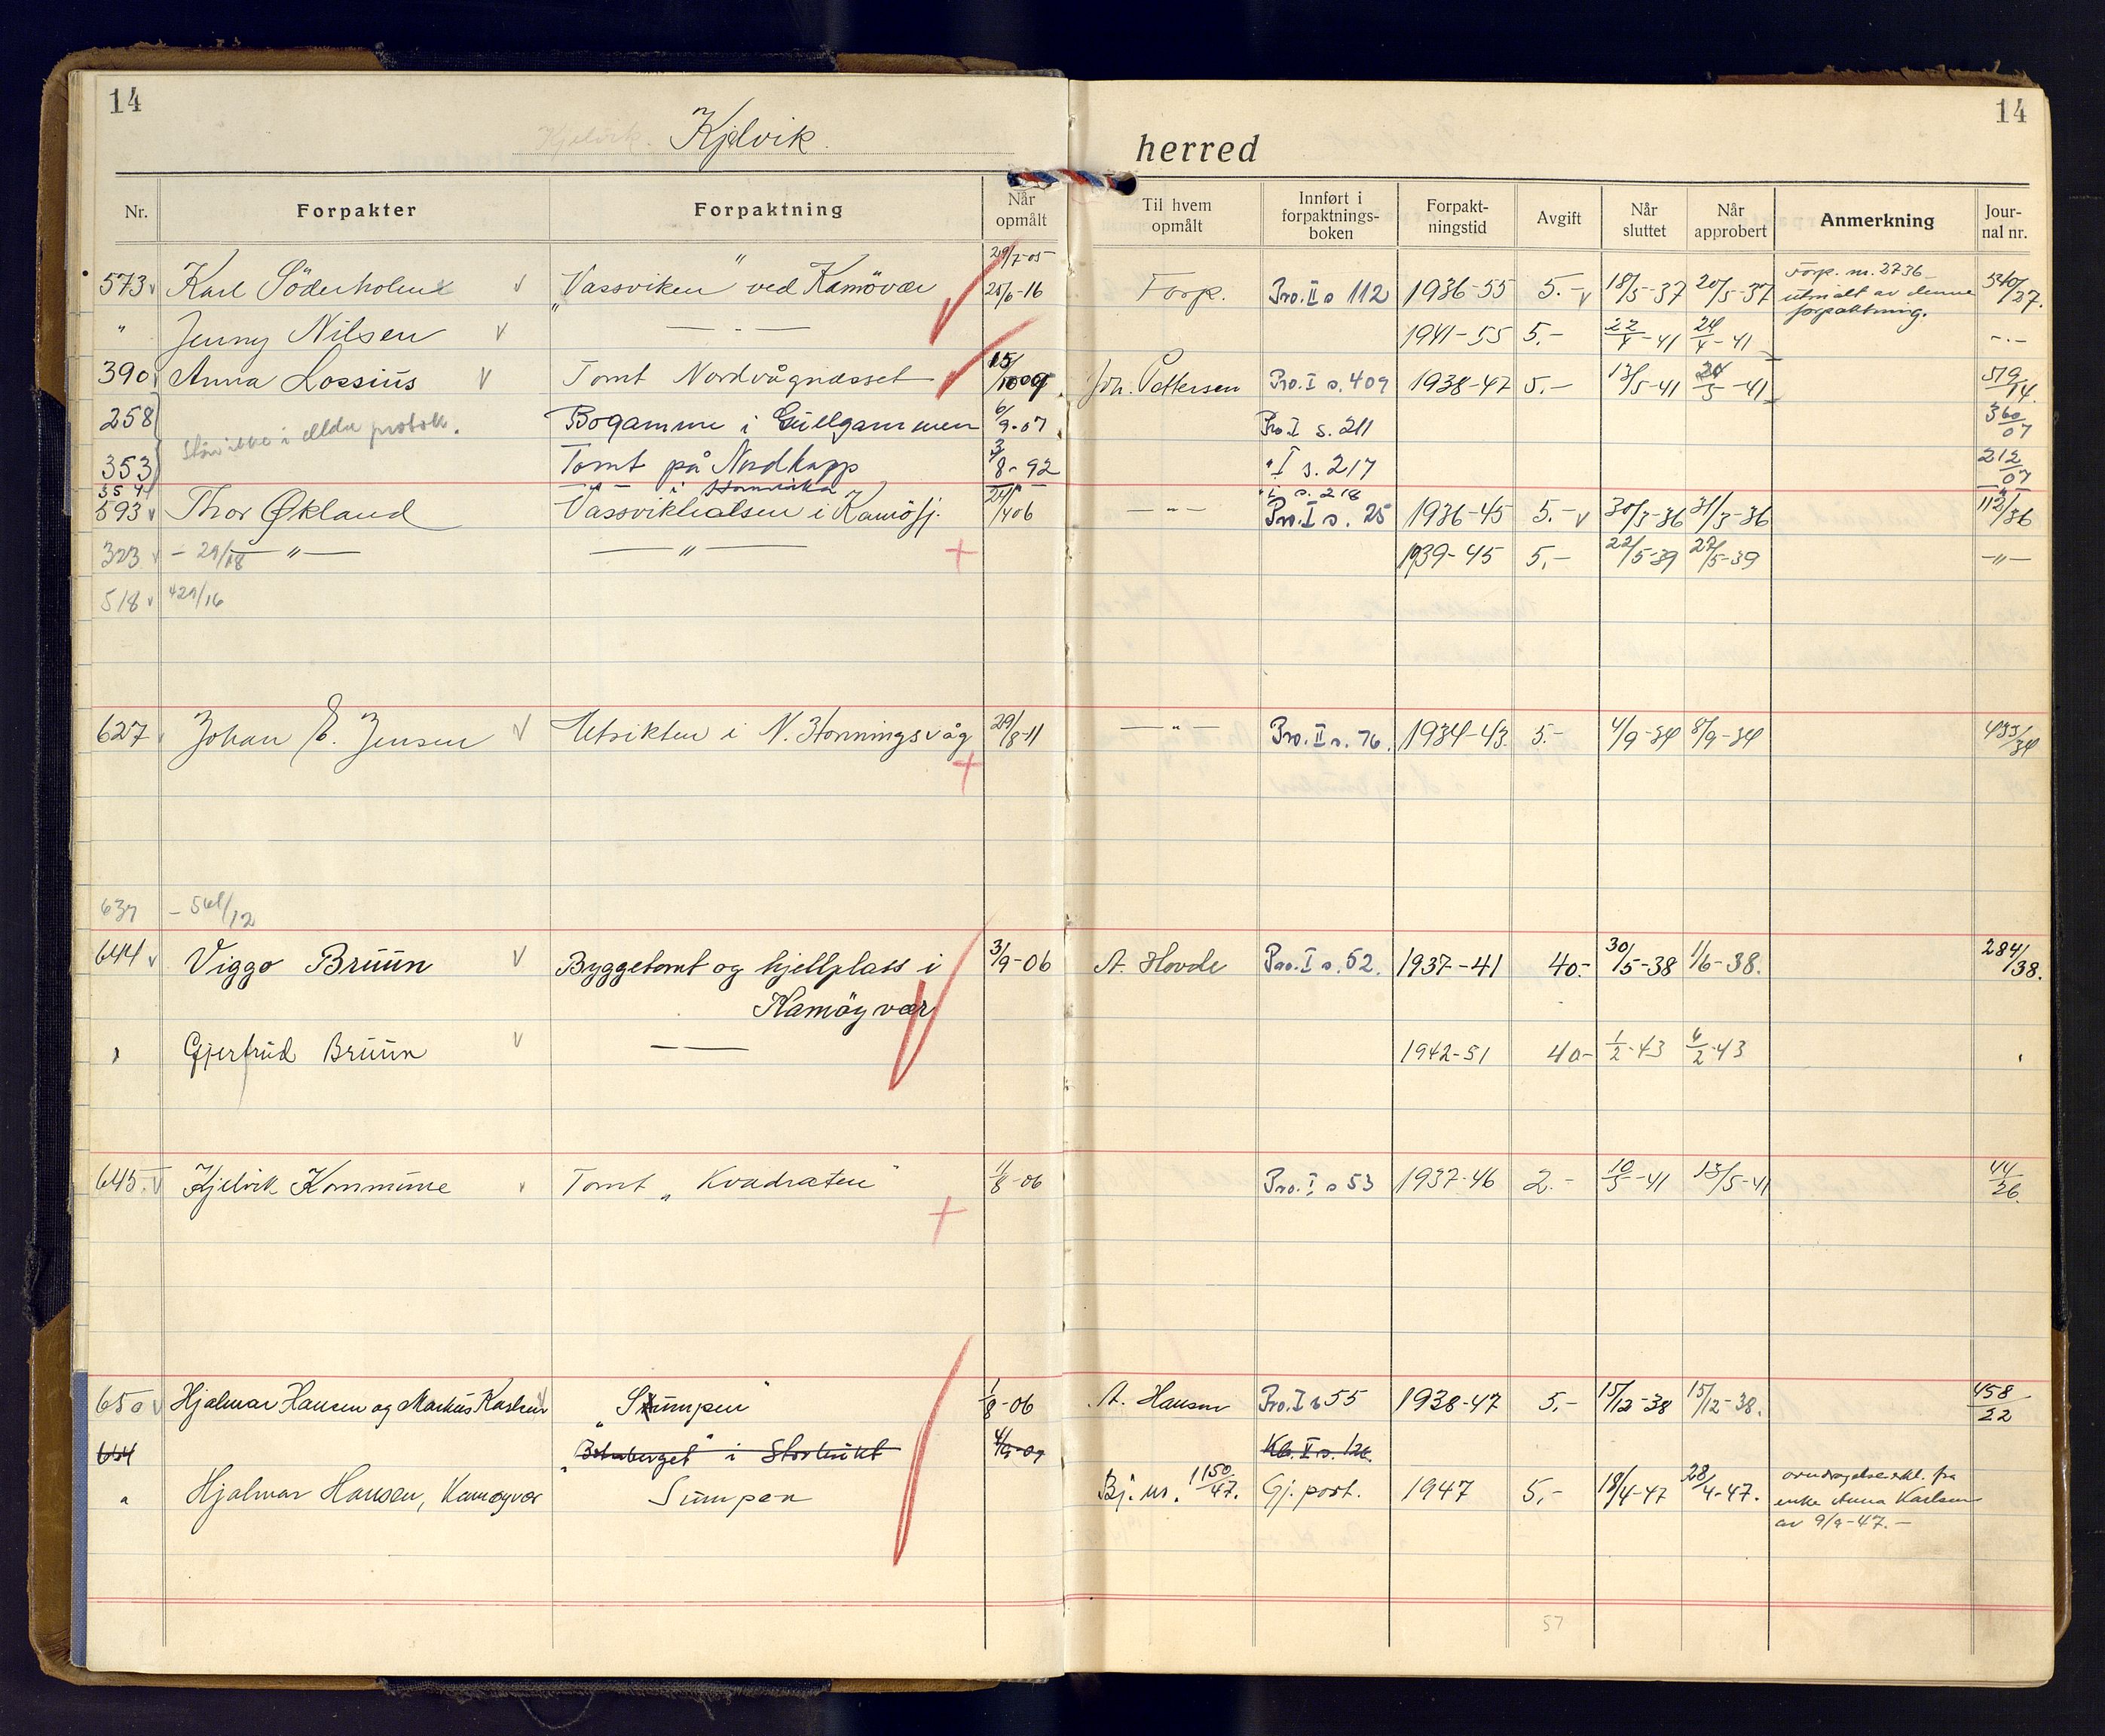 14
14
Kjelvik. Kjelvik.
herred
Nr. Forpakter Forpaktning Når opmålt Til hvem opmålt Innført i forpaktnings-boken Forpakt-ningstid Avgift Når sluttet Når approbert Anmerkning Jour-nal nr.
29/7-05
573 v Karl Söderholm v „Vassviken" ved Kamövær 25/6-16 Forp. Pro. II s 112 1936-55 5.- v 18/5-37 20/5-37 Forp. nr. 2736 utmålt av denne forpaktning. 340/27.
" Jenny Nilsen v — " — 1941-55 5.- 22/4-41 24/4-41 -"-
390 v Anna Lossius v Tomt Nordvågnæsset 15/10 09. Joh. Pettersen Pro. I s. 409 1938-47 5.- 13/5-41 24/5-41 519/14.
258 Står ikke i eldre protok. Bogamme i Gullgammen 6/9-07 Pro. I s. 211 360/07
353 Tomt på Nordkapp 3/8-92 " I s. 217 212/07
354 — " — i Hornvika " I s. 218
593 v Thor Økland Vassvikhalsen i Kamöfj. 24/406 — " — Pro. I s. 25 1936-45 5.- v 30/3-36 31/3-36 112/36
323 v - 29/18 — " — — " — 1939-45 5,- 22/5-39 27/5-39 -"-
518 v 429/16
627 Johan E. Jensen v Utsikten i N. Honningsvåg 29/8-11 — " — Pro. II s. 76. 1934-43. 5.- 4/9-34 8/9-34 433/34
637 - 561/12
644 v Viggo Bruun v Byggetomt og hjellplass i 3/9-06 A. Hovde Pro. I s. 52. 1937-41 40.- 30/5-38 1/6-38. 284/38.
Kamöyvær
" Gjertrud Bruun v — — 1942-51 40- 1/2-43 6/2-43 "
645. v Kjelvik Kommune v Tomt „Kvadraten" 11/8-06 Pro. I s 53 1937-46 2.- 10/5-41 13/5-41 44/26.
650 v Hjalmar Hansen og Markus Karlsen v „Sumpen" 1/8-06 A. Hansen Pro. I s 55 1938-47 5,- 15/12-38 15/12-38. 458/22
644 i Storbukt 4/9-07 Kb. II s. 126.
" Hjalmar Hansen, Kamøyvær Sumpen Bj. nr. 1150/47. Gj. post. 1947 5,- 18/4-47 28/4-47. fra
enke Anna Karlsen
av 9/9-47.-
57